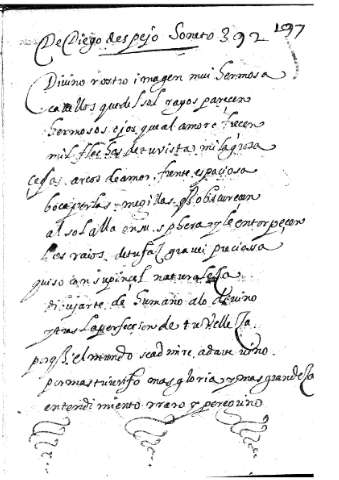 De Diego despejo Soneto 392 197
Divino rostro imagen mui hermosa
cavellos que del sol rayos parecen
hermosos ojos que al amor
mil flechas de tu vista milagrosa
cejas arcos de amor, frente espaciosa
boca perlas, mexillas q obscurecen
al sol alla en su sphera y le entorpecen
los raios, de tu faz graue i preciossa
quiso con su pincel naturaleza
dibujarte de humano a lo divino
y tras la perfeccion de tu belleza
porq el mundo se admire,
por mas triunfo mas gloria y mas grandeza
entendimiento rraro y peregrino